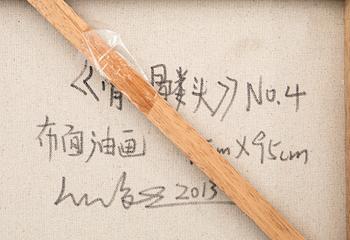 《骷髅头》No.4
布面油画 cm X 95cm
2013